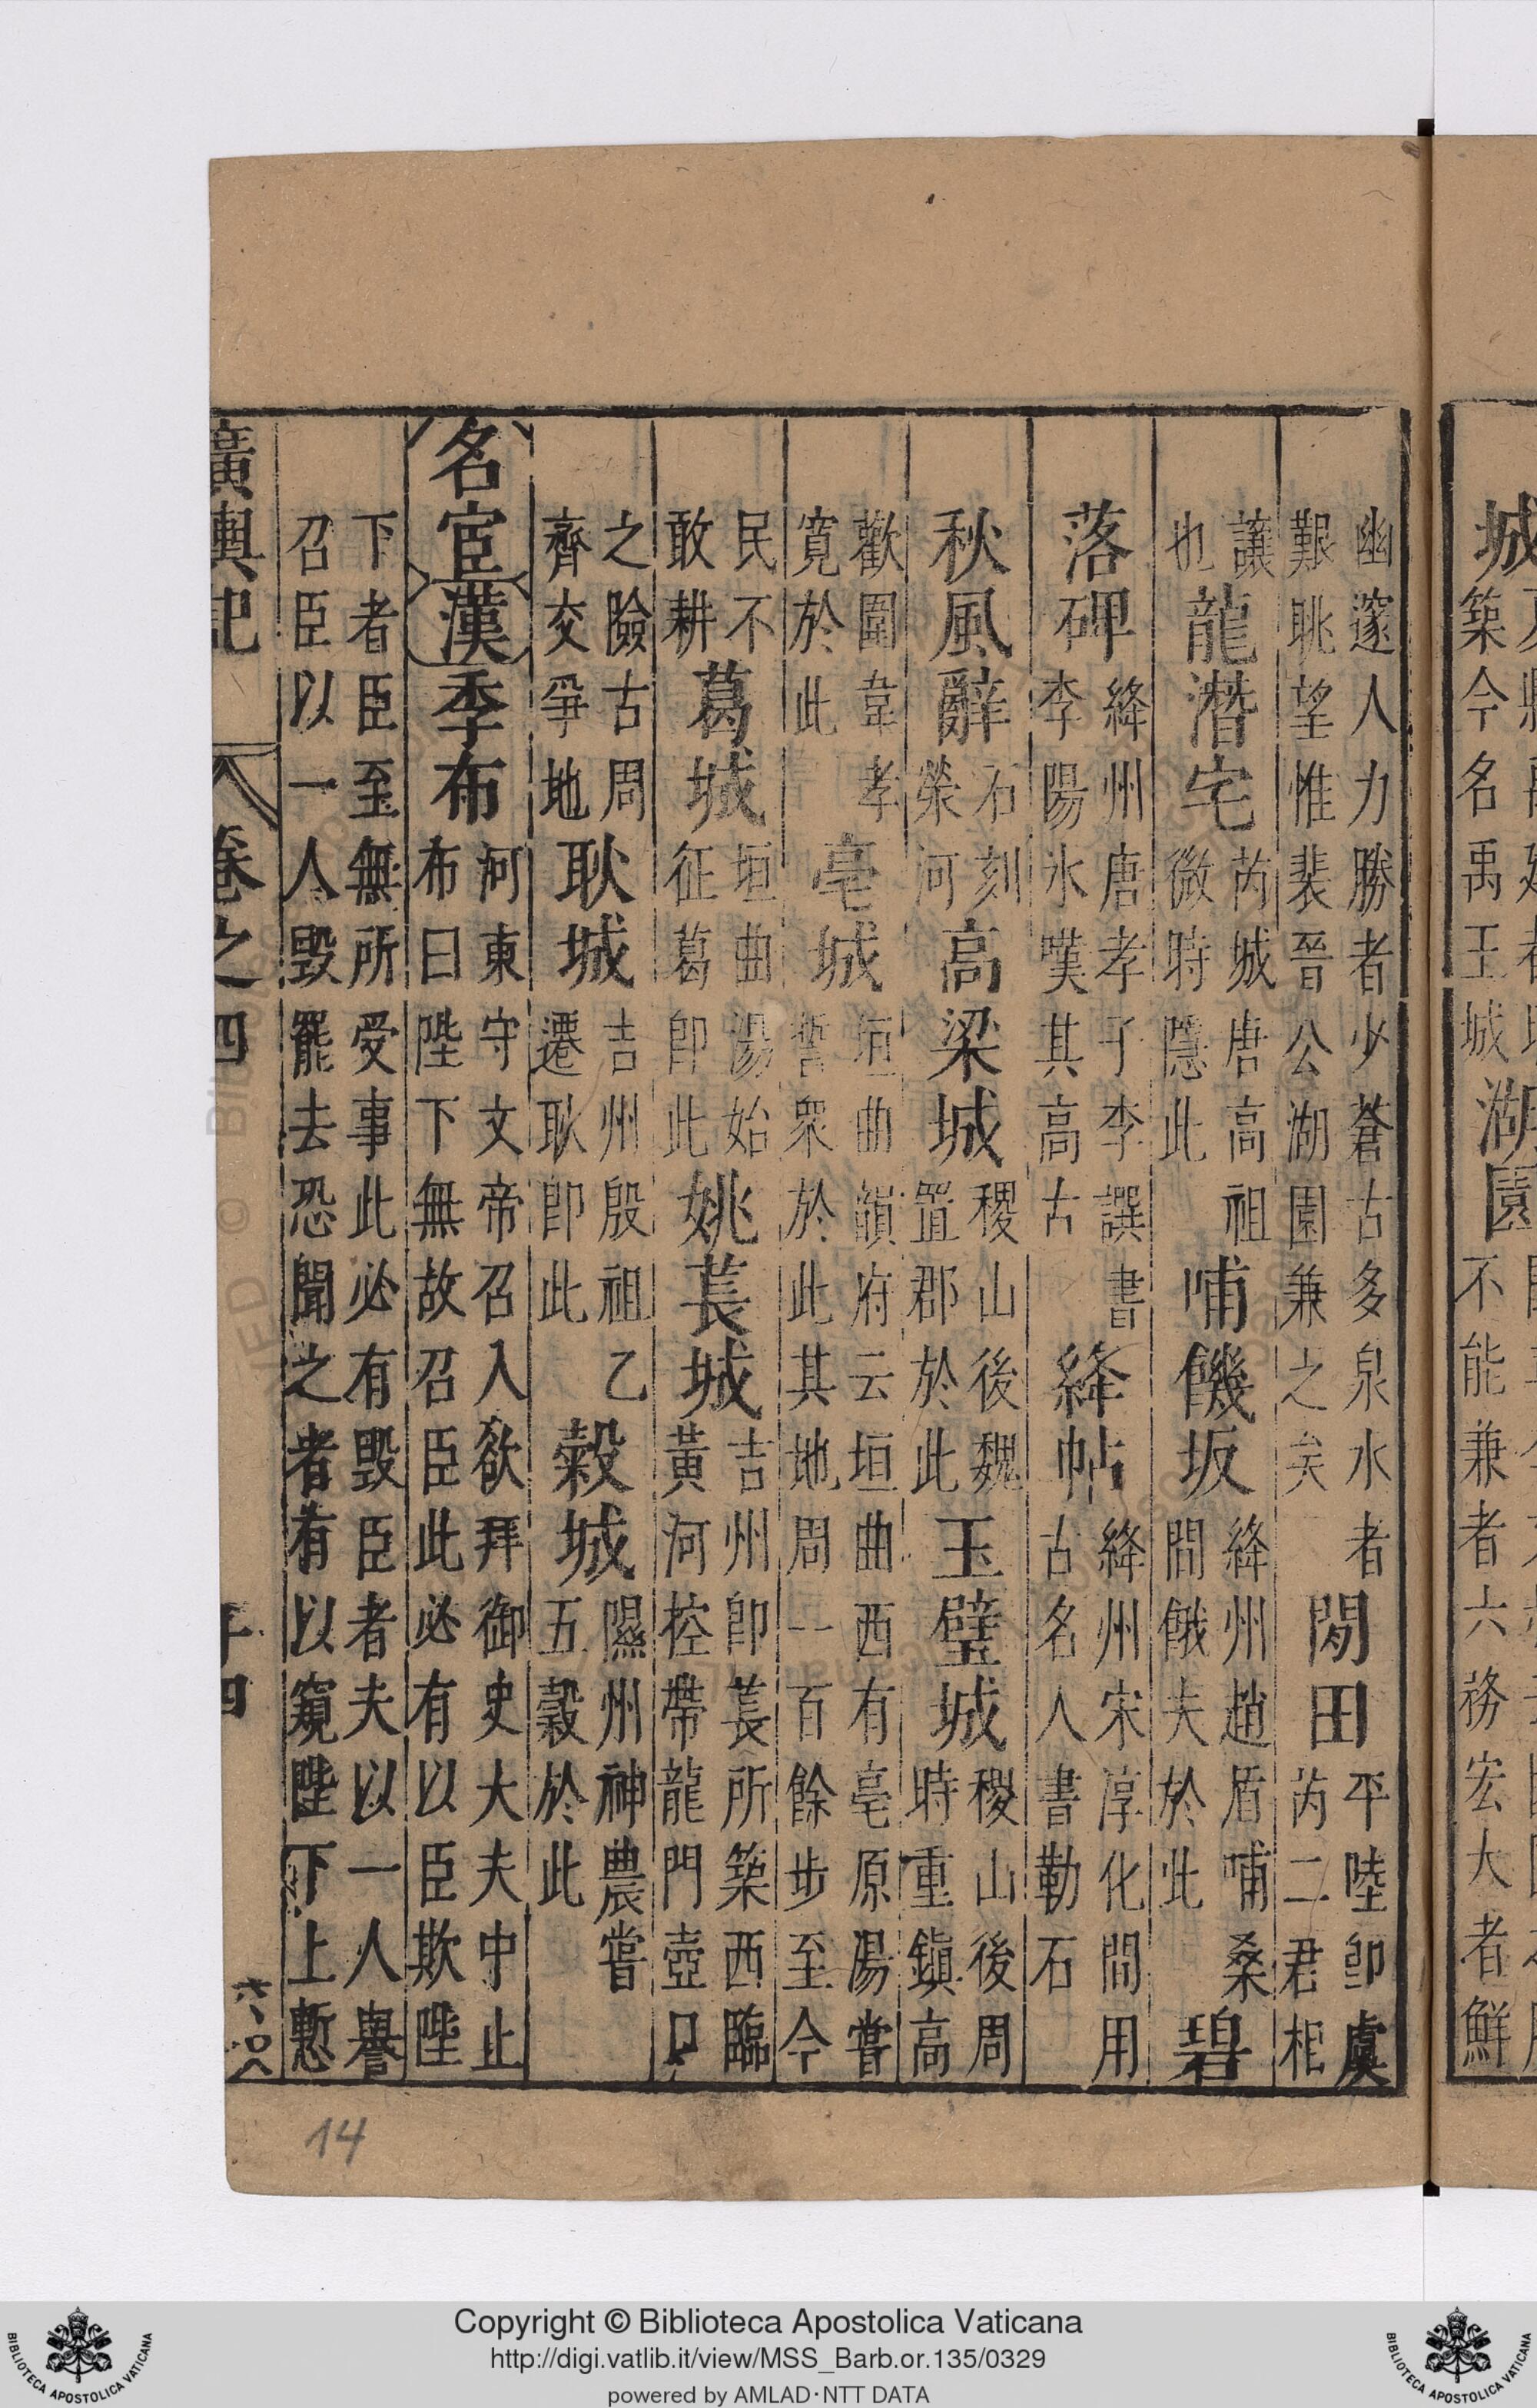 城
築今名禹王城
湖園
不能兼者六務宏大者鮮
幽邃人力勝者少蒼古多泉水者
艱眺望惟裴晉公湖園兼之矣
閒田
平陸卽虞
芮二君相
讓
也
龍潛宅
芮城唐高祖
微時隱此
哺饑坂
絳州趙盾哺桑
間餓夫於此
碧
落碑
絳州唐孝子李譔書
李陽冰嘆其高古
絳帖
絳州宋淳化間用
古名人書勒石
秋風辭
石刻
榮河
高梁城
稷山後魏
置郡於此
玉璧城
稷山後周
時重鎮高
歡圍韋孝
寬於此
亳城
垣曲韻府云垣曲西有亳原湯嘗
誓衆於此其地周一百餘步至今
民不
敢耕
葛城
垣曲湯始
征葛卽此
姚萇城
吉州卽萇所築西臨
黃河控帶龍門壺口
之險古周
齊交爭地
耿城
吉州殷祖乙
遷耿卽此
穀城
隰州神農嘗
五穀於此
名宦 漢 季布
河東守文帝召入欲拜御史大夫中止
布曰陛下無故召臣此必有以臣欺陛
下者臣至無所受事此必有毀臣者夫以一人譽
召臣以一人毀罷去恐聞之者有以窺陛下上慙
廣輿記 卷之四
14
Copyright © Biblioteca Apostolica Vaticana
http://digi.vatlib.it/view/MSS_Barb.or.135/0329
powered by AMLAD·NTT DATA
BIBLIOTECA APOSTOLICA VATICANA
BIBLIOTECA APOSTOLICA VATICANA